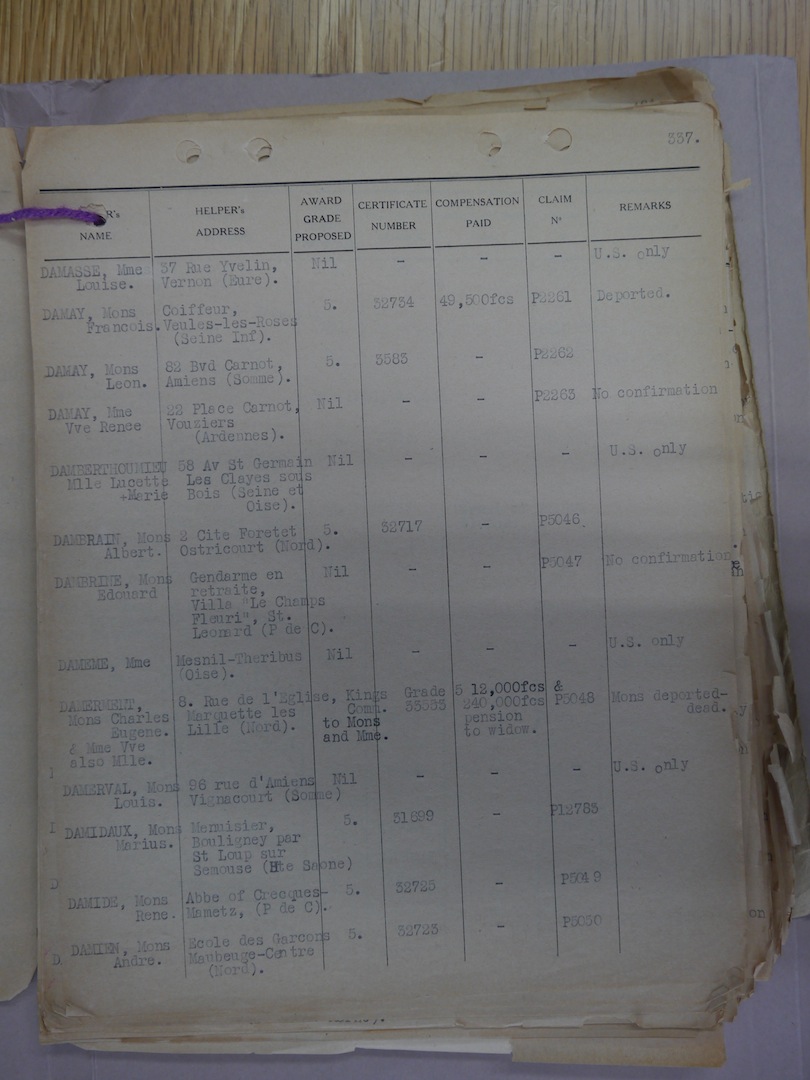 337.
R's NAME HELPER's ADDRESS AWARD GRADE PROPOSED CERTIFICATE NUMBER COMPENSATION PAID CLAIM Nº REMARKS
DAMASSE, Mme 37 Rue Yvelin, Nil - - - U.S. only
Louise. Vernon (Eure).
DAMAY, Mons Coiffeur, 5. 32734 49,500fcs P2261 Deported.
Francois. Veules-les-Roses
(Seine Inf).
DAMAY, Mons 82 Bvd Carnot, 5. 3583 - P2262
Leon. Amiens (Somme).
DAMAY, Mme 22 Place Carnot, Nil - - P2263 No confirmation
Vve Renee Vouziers
(Ardennes).
DAMBERTHOUMIEU 58 Av St Germain Nil - - - U.S. only
Mlle Lucette Les Clayes sous
+Marie Bois (Seine et
Oise).
DAMBRAIN, Mons 2 Cite Foretet 5. 32717 - P5046
Albert. Ostricourt (Nord).
DAMBRINE, Mons Gendarme en Nil - - P5047 No confirmation
Edouard retraite,
Villa "Le Champs
Fleuri", St.
Leonard (P de C).
DAMEME, Mme Mesnil-Theribus Nil - - - U.S. only
(Oise).
DAMERMENT, 8. Rue de l'Eglise, Kings Grade 5 12,000fcs & P5048 Mons deported-
Mons Charles Marquette les Com. 33333 240,000fcs dead.
Eugene. Lille (Nord). to Mons pension
& Mme Vve and Mme. to widow.
also Mlle.
DAMERVAL, Mons 96 rue d'Amiens Nil - - - U.S. only
Louis. Vignacourt (Somme)
DAMIDAUX, Mons Menuisier, 5. 31899 - P12783
Marius. Bouligney par
St Loup sur
Semouse (Hte Saone)
DAMIDE, Mons Abbe of Crecques- 5. 32725 - P5049
Rene. Mametz, (P de C).
DAMIEN, Mons Ecole des Garcons 5. 32723 - P5050
Andre. Maubeuge-Centre
(Nord).